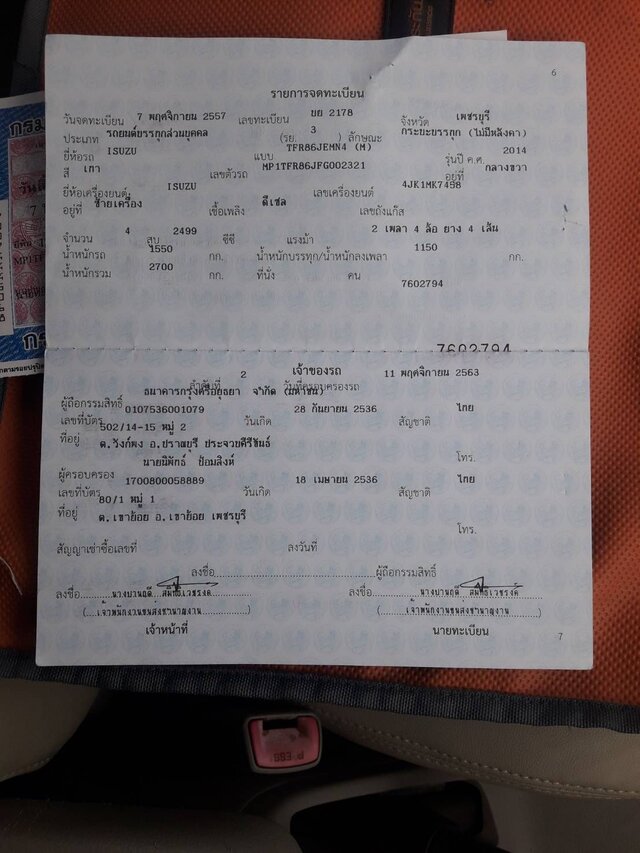 6
รายการจดทะเบียน
วันจดทะเบียน 7 พฤศจิกายน 2557 เลขทะเบียน บย 2178 จังหวัด เพชรบุรี
ประเภท รถยนต์บรรทุกส่วนบุคคล (รย. 3 ) ลักษณะ กระบะบรรทุก (ไม่มีหลังคา)
ยี่ห้อรถ ISUZU แบบ TFR86JEMN4 (M) รุ่นปี ค.ศ. 2014
สี เทา เลขตัวรถ MP1TFR86JFG002321 อยู่ที่ กลางขวา
ยี่ห้อเครื่องยนต์ ISUZU เลขเครื่องยนต์ 4JK1MK7498
อยู่ที่ ซ้ายเครื่อง เชื้อเพลิง ดีเซล เลขถังแก๊ส
จำนวน 4 สูบ 2499 ซีซี แรงม้า 2 เพลา 4 ล้อ ยาง 4 เส้น
น้ำหนักรถ 1550 กก. น้ำหนักบรรทุก/น้ำหนักลงเพลา 1150 กก.
น้ำหนักรวม 2700 กก. ที่นั่ง คน
7602794
7602794
เจ้าของรถ
ลำดับที่ 2 วันที่ครอบครองรถ 11 พฤศจิกายน 2563
ผู้ถือกรรมสิทธิ์ ธนาคารกรุงศรีอยุธยา จำกัด (มหาชน)
เลขที่บัตร 0107536001079 วันเกิด 28 กันยายน 2536 สัญชาติ ไทย
ที่อยู่ 502/14-15 หมู่ 2
ต.วังก์พง อ.ปราณบุรี ประจวบคีรีขันธ์ โทร.
ผู้ครอบครอง นายนิพัทธ์ ป้อมสิงห์
เลขที่บัตร 1700800058889 วันเกิด 18 เมษายน 2536 สัญชาติ ไทย
ที่อยู่ 80/1 หมู่ 1
ต.เขาย้อย อ.เขาย้อย เพชรบุรี โทร.
สัญญาเช่าซื้อเลขที่ ลงวันที่
ลงชื่อ ผู้ถือกรรมสิทธิ์
ลงชื่อ ลงชื่อ
(เจ้าพนักงานขนส่งชำนาญงาน) (เจ้าพนักงานขนส่งชำนาญงาน)
เจ้าหน้าที่ นายทะเบียน
7